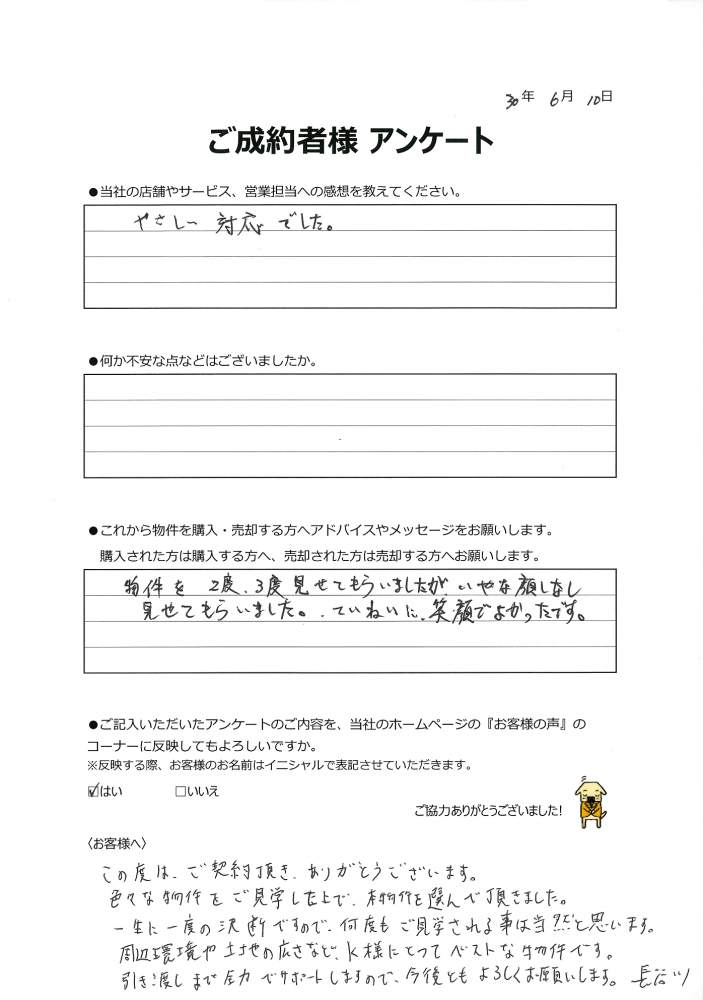 30年 6月 10日
ご成約者様 アンケート
●当社の店舗やサービス、営業担当への感想を教えてください。
やさしー 対応 でした。
●何か不安な点などはございましたか。
●これから物件を購入・売却する方へアドバイスやメッセージをお願いします。
購入された方は購入する方へ、売却された方は売却する方へお願いします。
物件を 2度、3度見せてもらいましたが いやな顔しなし
見せてもらいました。.ていねいに、笑顔でよかったです。
●ご記入いただいたアンケートのご内容を、当社のホームページの『お客様の声』の
コーナーに反映してもよろしいですか。
※反映する際、お客様のお名前はイニシャルで表記させていただきます。
☑はい □いいえ
ご協力ありがとうございました!
〈お客様へ〉
この度は、ご契約頂き、ありがとうございます。
色々な物件をご見学した上で、本物件を選んで頂きました。
一生に一度の決断ですので、何度もご見学される事は当然と思います。
周辺環境や土地の広さなど、K様にとってベストな物件です。
引き渡しまで全力でサポートしますので、今後ともよろしくお願いします。 長谷川